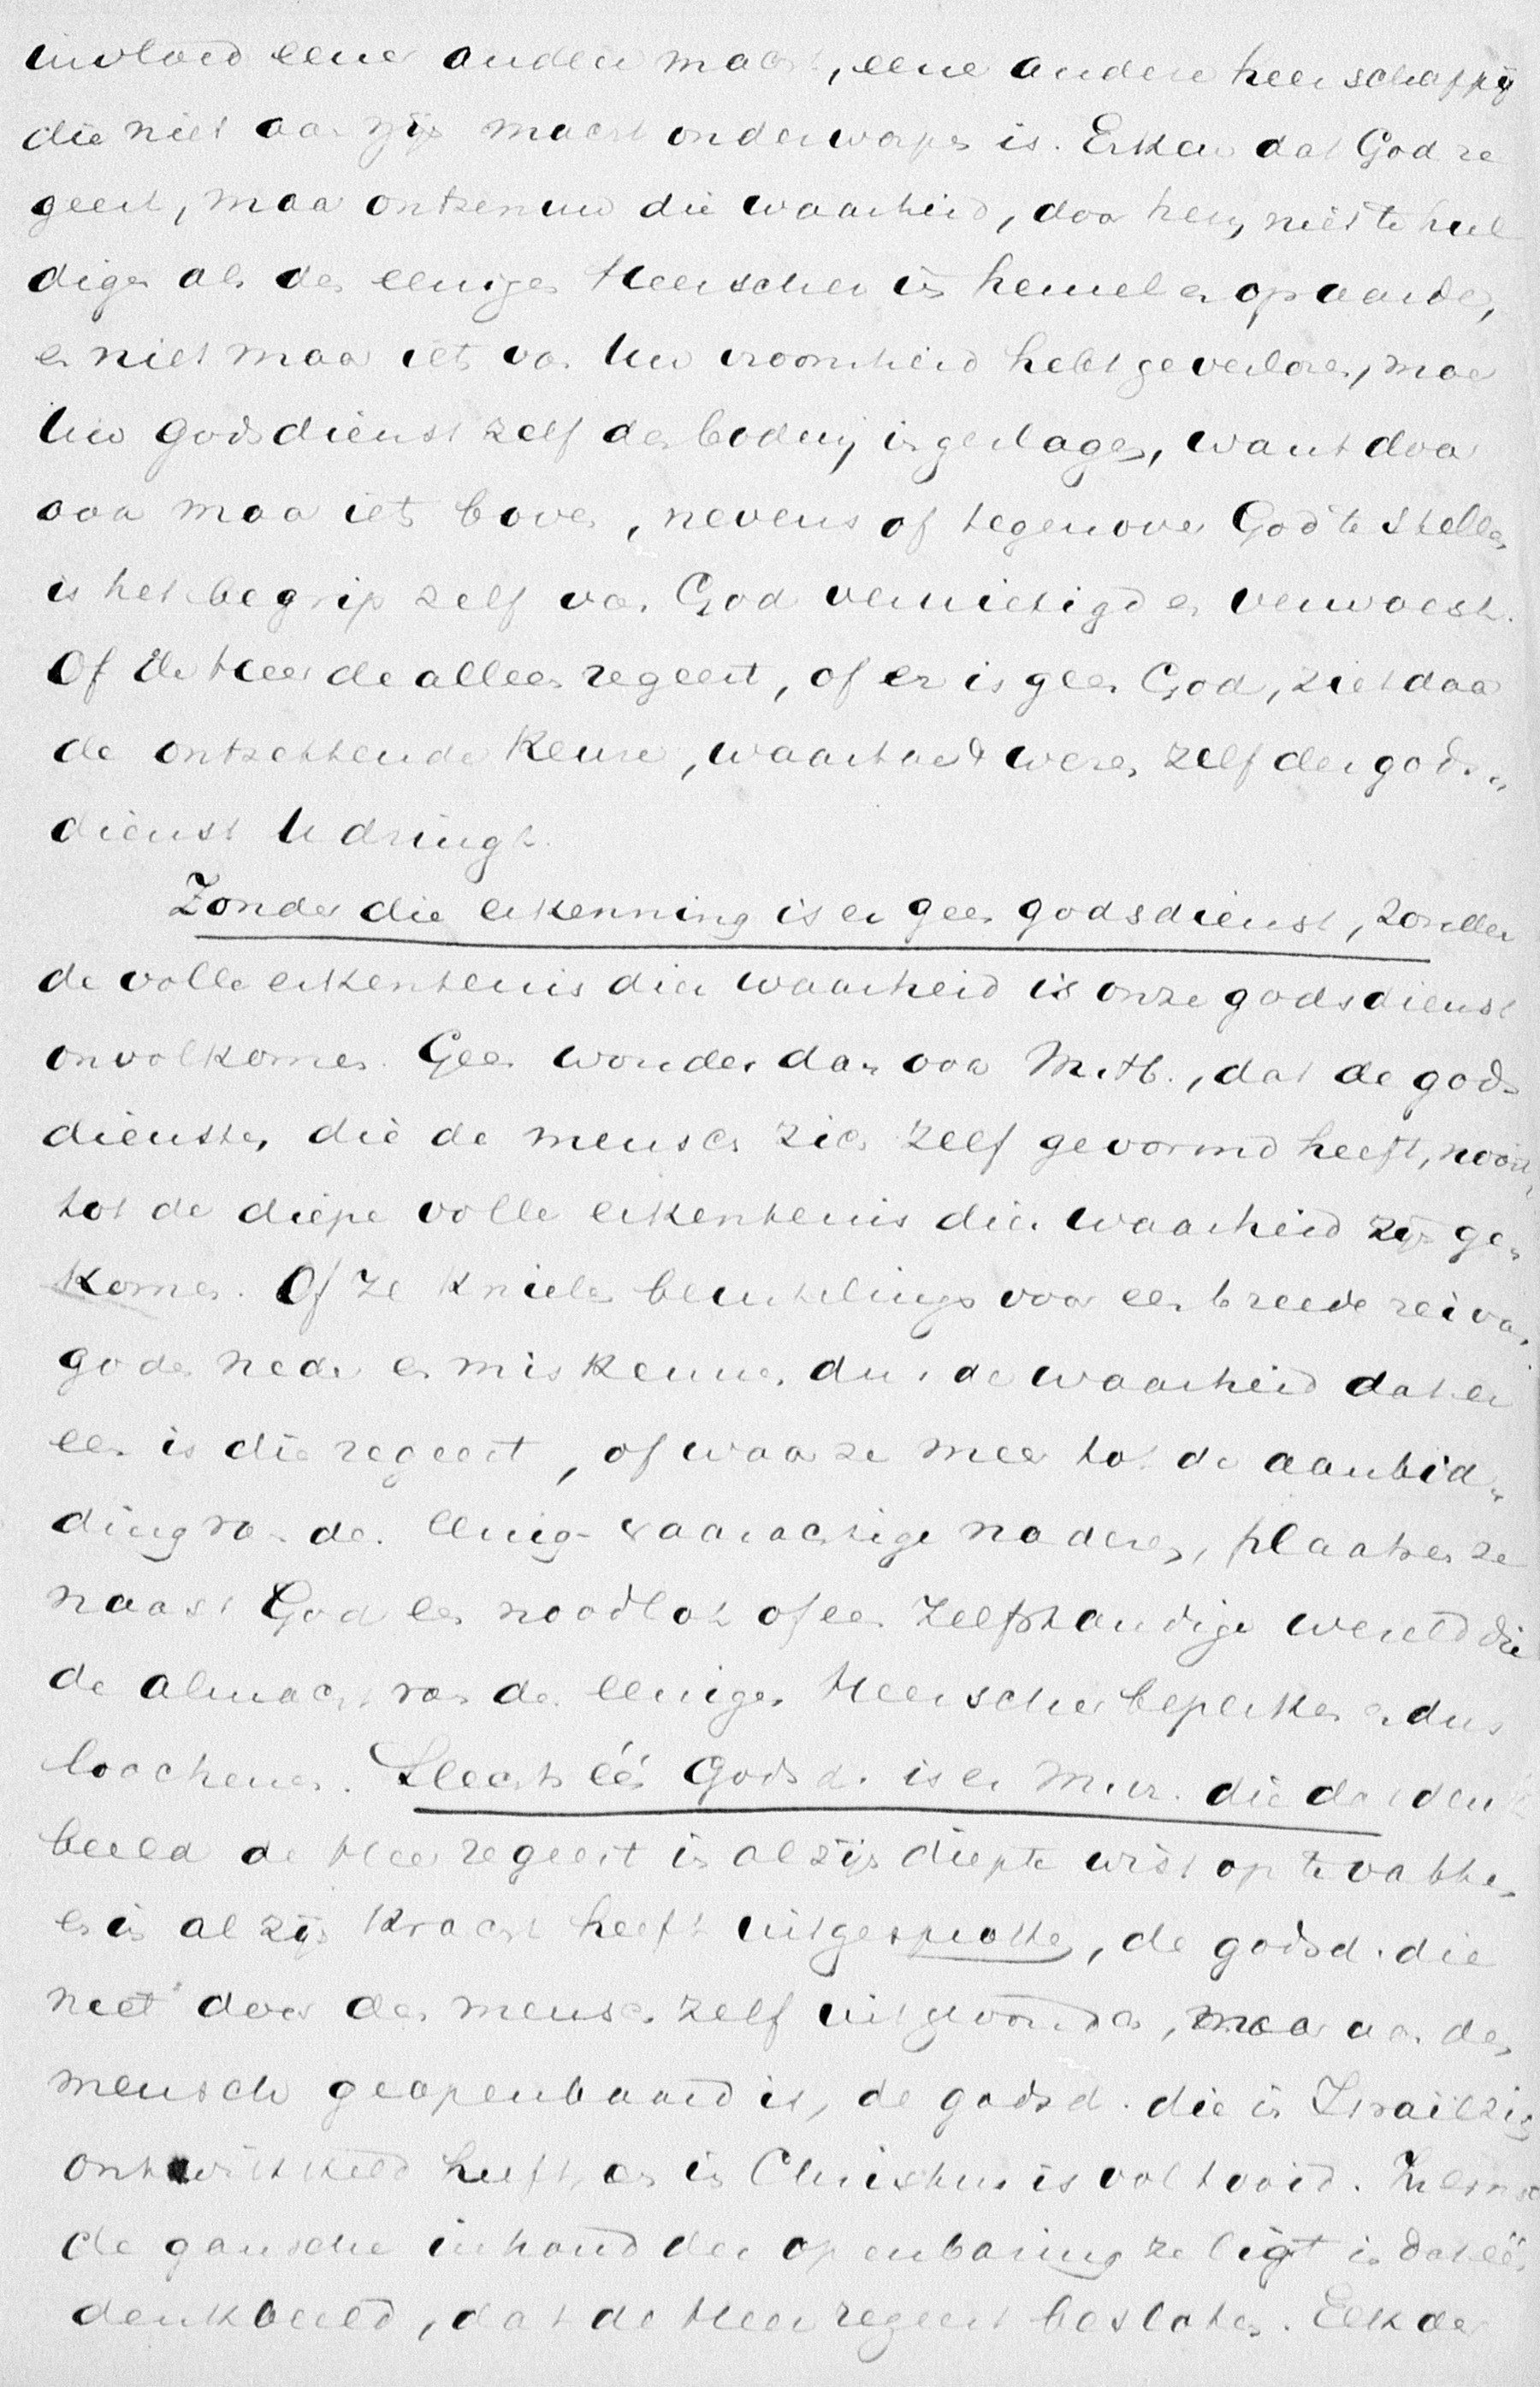 invloed eener andere macht, eene andere heerschappij
die niet aan zijn macht onderworpen is. Erken dat God re
geert, maar ontzenuw die waarheid, door hem niet te hul
digen als den eenigen Heerscher in hemel en op aarde,
en niet maar iets van Uw vroomheid hebt ge verloren, maar
Uw godsdienst zelf den bodem ingeslagen, want door
ook maar iets boven, nevens of tegenover God te stellen
is het begrip zelf van God vernietigd en verwoest.
Of de Heer de alleen regeert, of er is geen God, ziet daar
de ontzettende keuze, waartoe het wezen zelf der gods„
dienst U dringt.
Zonder die erkenning is er geen godsdienst, zonder
de volle erkentenis dier waarheid is onze godsdienst
onvolkomen. Geen wonder dan ook M. H., dat de gods
diensten, die de mensch zich zelf gevormd heeft, nooit
tot de diepe volle erkentenis dier waarheid zijn ge„
komen. Of ze knielen beurtelings voor een breede rei van
goden neder en miskennen dus de waarheid dat er
een is die regeert, of waar ze meer tot de aanbid„
ding van den eenig waarachtige naderen, plaatsen ze
naast God een noodlot of een zelfstandige wereld die
de almacht van den eenigen Heerscher beperken en dus
loochenen. Slechts één Godsd. is er die dat denk
beeld de Heer regeert in al zijn diepte wist op te vatten
en in al zijn kracht heeft uitgesproken, de godsd. die
niet door den mensch zelf uitgevonden, maar aan den
mensch geopenbaard is, de godsd. die in Israël zich
ontwikkeld heeft en in Christus is voltooid.
de gansche inhoud der openbaring ze ligt in dat één
denkbeeld, dat de Heer regeert besloten. Elk der